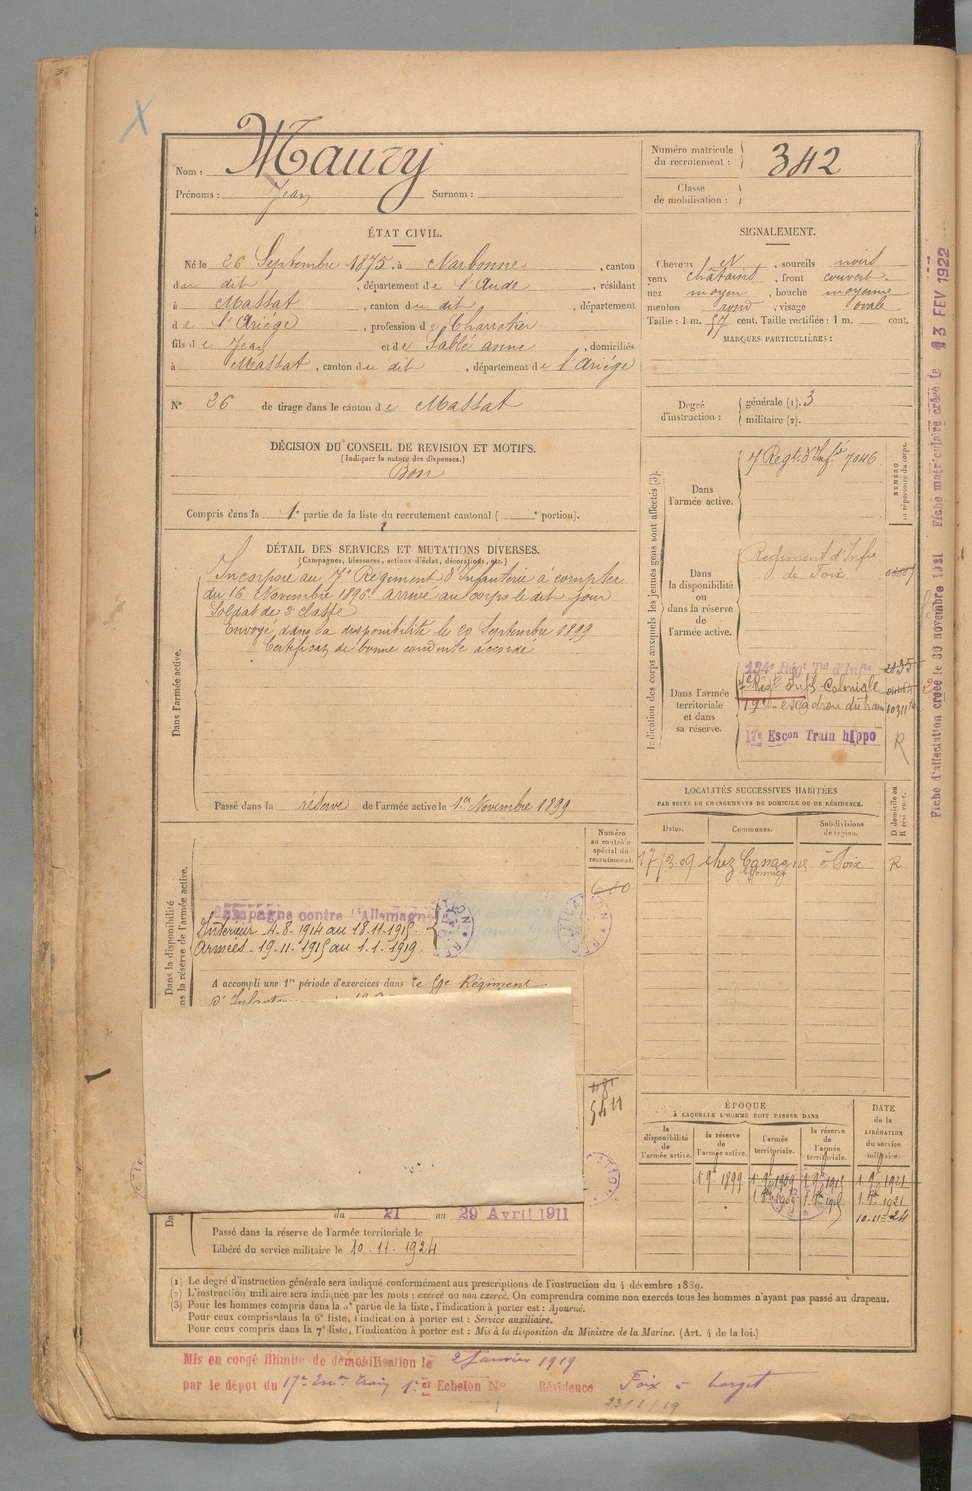 Nom : Maury
Prénoms : Jean Surnom :
Numéro matricule
du recrutement : 342
Classe
de mobilisation :
ÉTAT CIVIL.
Né le 26 Septembre 1875, à Narbonne, canton
du dit, département de l'Aude, résidant
à Massat, canton du dit, département
de l'Ariége, profession de Charretier
fils de Jean et de Sablé anne, domiciliés
à Massat, canton du dit, département de l'Ariége
N° 26 de tirage dans le canton de Massat
SIGNALEMENT.
Cheveux N, sourcils noirs
yeux châtains, front couvert
nez moyen, bouche moyenne
menton rond, visage ovale
Taille : 1 m. 57 cent. Taille rectifiée : 1 m. cent.
MARQUES PARTICULIÈRES :
Degré
d'instruction :
générale (1). 3
militaire (2).
DÉCISION DU CONSEIL DE REVISION ET MOTIFS.
(Indiquer la nature des dispenses.)
Bon
Compris dans la 1e partie de la liste du recrutement cantonal ( e portion).
DÉTAIL DES SERVICES ET MUTATIONS DIVERSES.
(Campagnes, blessures, actions d'éclat, décorations, etc.)
Dans l'armée active.
Incorporé au 7e Régiment d'Infanterie à compter
du 16 Novembre 1896. arrivé au corps le dit jour
Soldat de 2e classe
Envoyé dans la disponibilité le 20 Septembre 1899
Certificat de bonne conduite accordé
Passé dans la réserve de l'armée active le 1er Novembre 1899
Indication des corps auxquels les jeunes gens sont affectés (3).
NUMÉRO
au répertoire du corps.
Dans
l'armée active.
7 Regt. d'Infie 7046
Dans
la disponibilité
ou
dans la réserve
de l'armée active.
Regiment d'Infie
de Foix
Dans l'armée
territoriale
et dans
sa réserve.
134e Régt Tal d'Infie 2135
Coloniale
19e escadron du train
17e Escon Train hippo R
LOCALITÉS SUCCESSIVES HABITÉES
PAR SUITE DE CHANGEMENTS DE DOMICILE OU DE RÉSIDENCE.
D domicile ou
R résidence.
Dates. Communes. Subdivisions
de région.
chez Cassagne à Foix R
Numéro
au contrôle
spécial du
recrutement.
Dans la disponibilité
ou dans la réserve de l'armée active.
Campagne contre l'Allemagne
Intérieur 4.8.1914 au 18.11.1915
Armées. 19.11.1915 au 1.1.1919.
A accompli une 1re période d'exercices dans le 59e Régiment
5411
du 21 au 29 Avril 1911
Passé dans la réserve de l'armée territoriale le
Libéré du service militaire le 10.11.1924
ÉPOQUE
À LAQUELLE L'HOMME DOIT PASSER DANS
DATE
de la
LIBÉRATION
du service
militaire.
la
disponibilité
de
l'armée active.
la réserve
de
l'armée active.
l'armée
territoriale.
la réserve
de
l'armée
territoriale.
1 9e 1899 1921
1921
10-11-24
(1) Le degré d'instruction générale sera indiqué conformément aux prescriptions de l'instruction du 4 décembre 1889.
(2) L'instruction militaire sera indiquée par les mots : exercé ou non exercé. On comprendra comme non exercés tous les hommes n'ayant pas passé au drapeau.
(3) Pour les hommes compris dans la 5e partie de la liste, l'indication à porter est : Ajourné.
Pour ceux compris dans la 6e liste, l'indication à porter est : Service auxiliaire.
Pour ceux compris dans la 7e liste, l'indication à porter est : Mis à la disposition du Ministre de la Marine. (Art. 4 de la loi.)
Mis en congé illimité de démobilisation le 2 Janvier 1919
par le dépôt du 17e Train 1er Echelon N° Résidence Foix
Fiche d'affectation créée le 30 novembre 1921 Fiche matriculaire créée le 13 FEV 1922